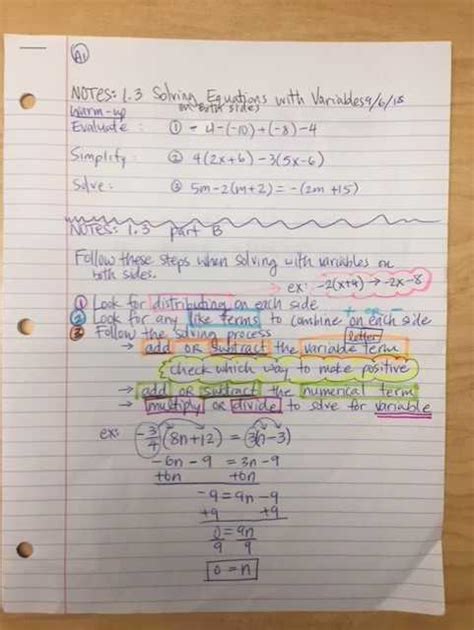 A1
NOTES: 1.3 Solving Equations with Variables 9/6/18
on both sides
Warm-up
Evaluate: ① -4-(-10)+(-8)-4
Simplify: ② 4(2x+6)-3(5x-6)
Solve: ③ 5m-2(m+2)=-(2m+15)
NOTES: 1.3 part B
Follow these steps when solving with variables on
both sides.
ex: -2(x+4) → -2x-8
① Look for distributing on each side
② Look for any like terms to combine on each side
③ Follow the solving process
letter
→ add or subtract the variable term
check which way to make positive
→ add or subtract the numerical term
→ multiply or divide to solve for variable
ex: -3/4(8n+12) = 3(n-3)
-6n-9 = 3n-9
+6n +6n
-9 = 9n-9
+9 +9
0 = 9n
9 9
0 = n